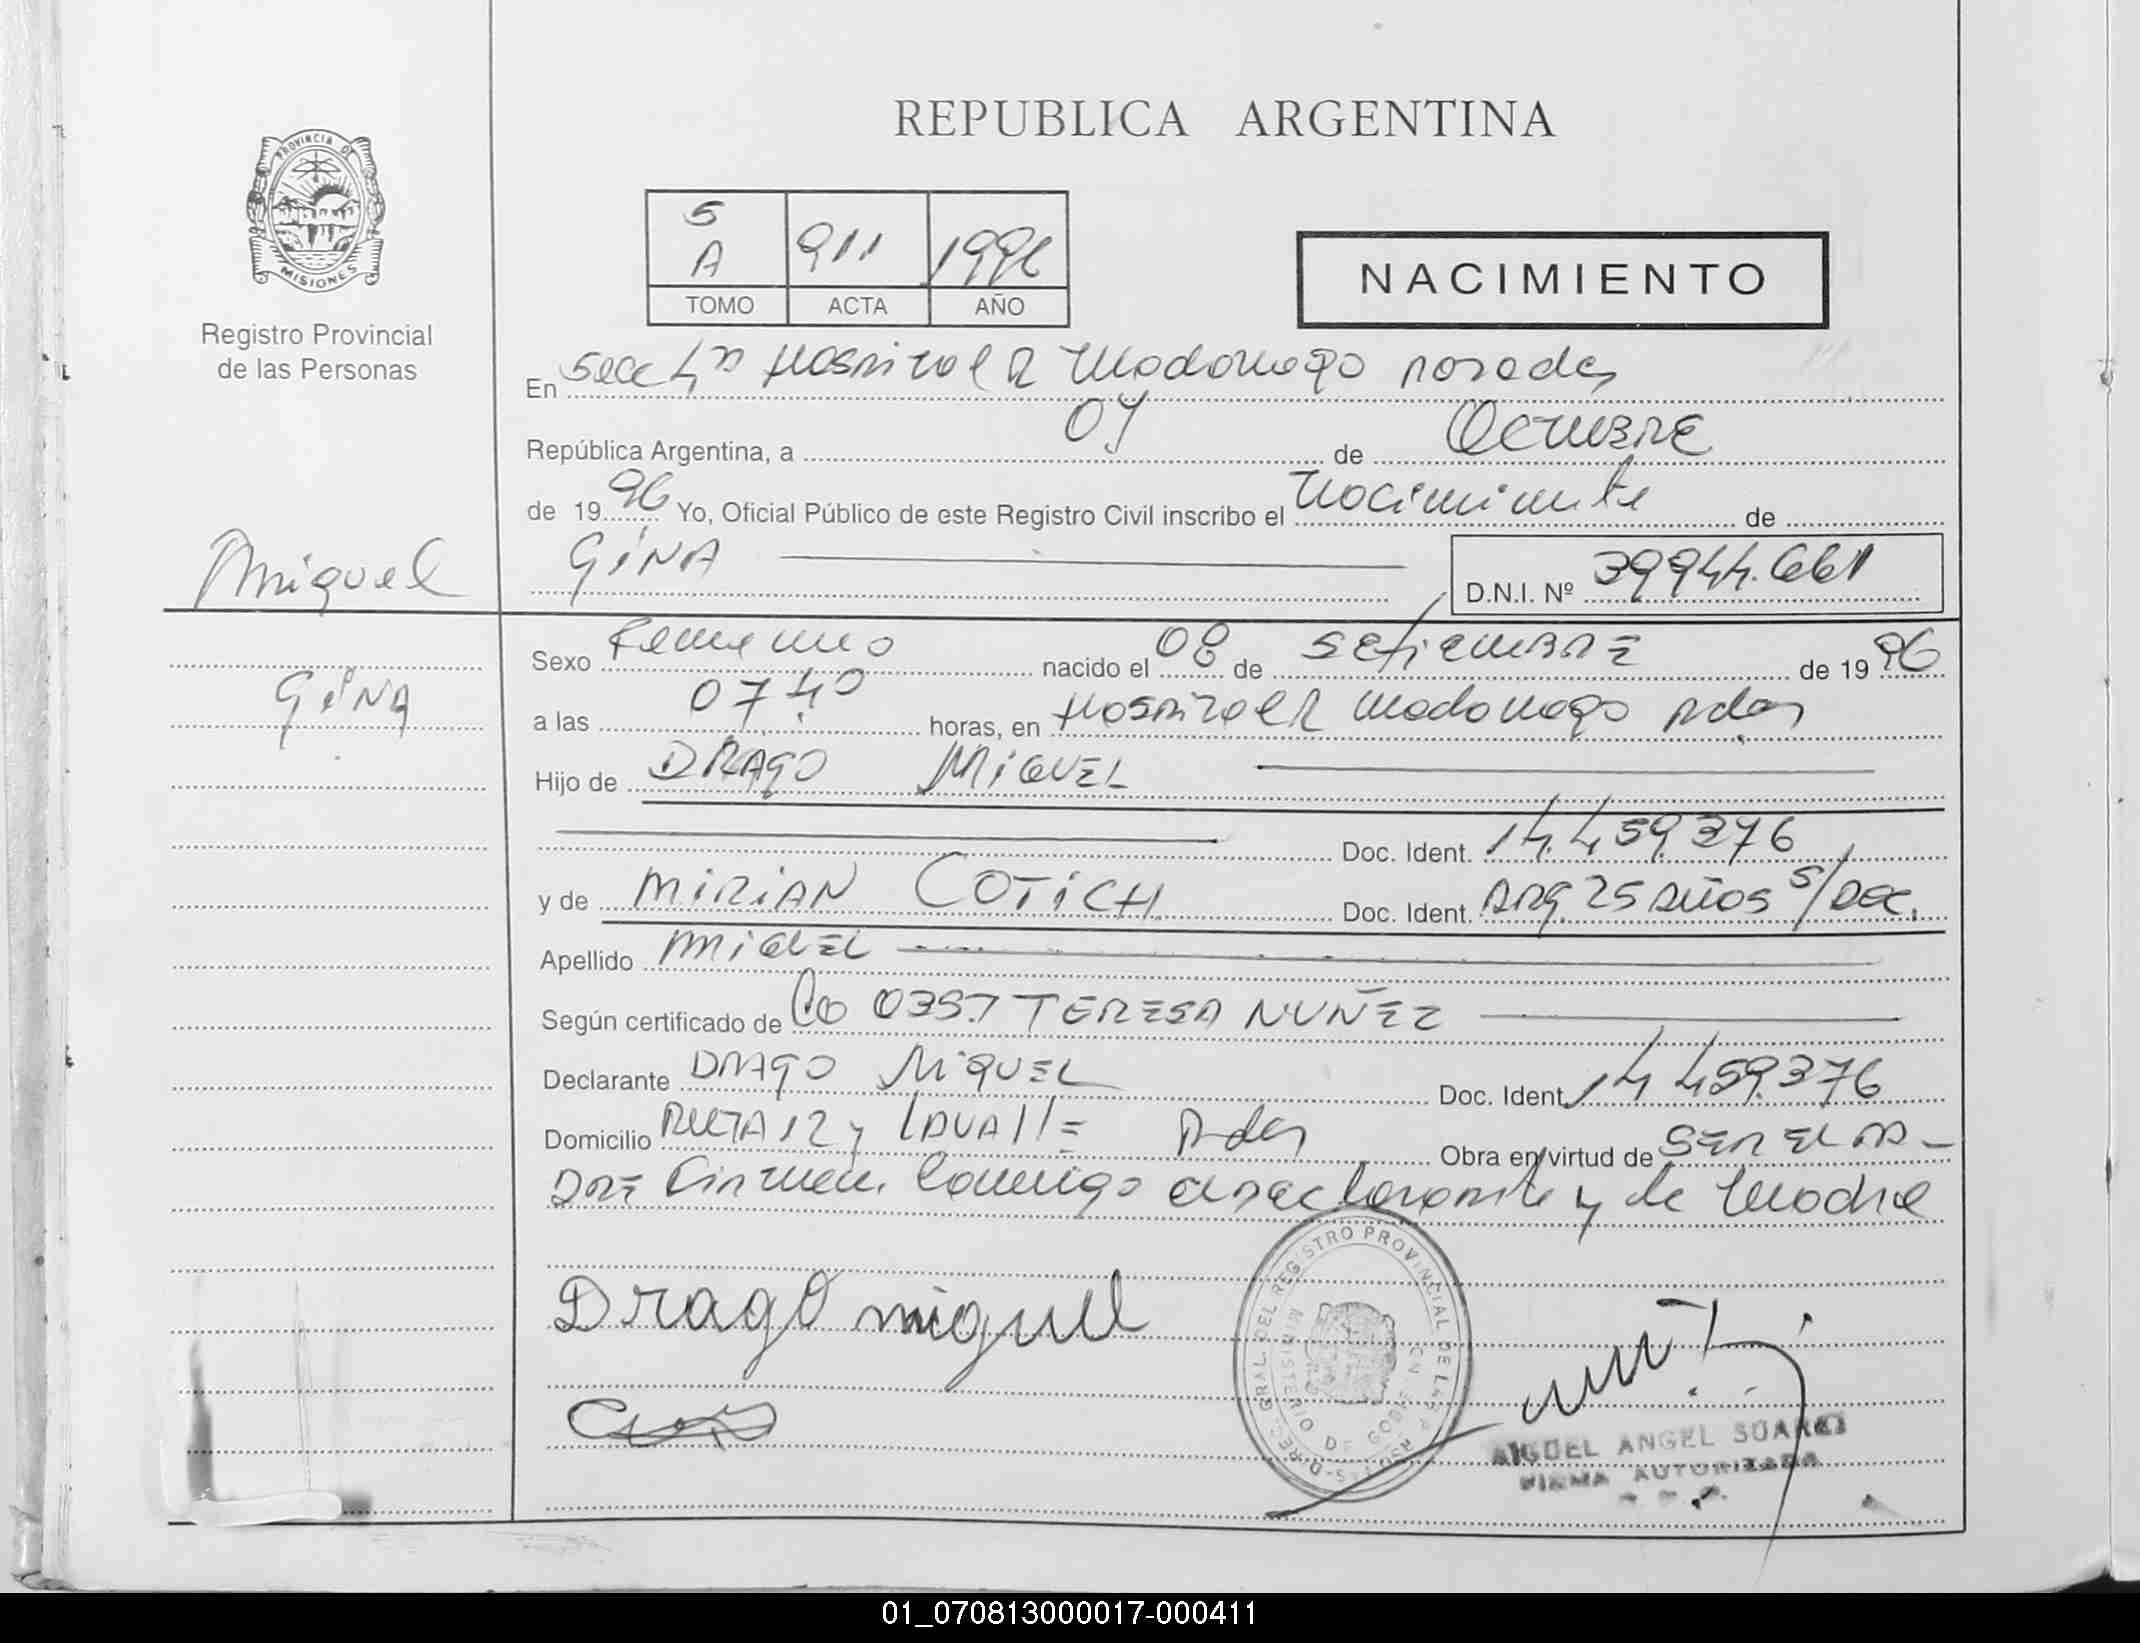 REPUBLICA ARGENTINA
PROVINCIA DE
MISIONES
Registro Provincial
de las Personas
5
A 911 1996
TOMO ACTA AÑO
NACIMIENTO
En Secc Hospital R Madariaga Posadas
República Argentina, a 04 de Octubre
de 1996 Yo, Oficial Público de este Registro Civil inscribo el Nacimiento de
Miguel
GINA
D.N.I. Nº 39944.661
GINA
Sexo Femenino nacido el 08 de Setiembre de 1996
a las 0740 horas, en Hospital R Madariaga Pdas
Hijo de DRAGO MIGUEL
Doc. Ident. 14.459.376
y de MIRIAN COTICH Doc. Ident. ARG. 25 AÑOS S/DOC.
Apellido MIGUEL
Según certificado de Co 0357 TERESA NUÑEZ
Declarante DRAGO MIGUEL Doc. Ident. 14 459.376
Domicilio RUTA 12 y LAVALLE Pdas Obra en virtud de SER EL PA-
DRE Firman Conmigo el declarante y la Madre
Drago miguel
DIREC. GRAL. DEL REGISTRO PROVINCIAL DE LAS PERSONAS
MINISTERIO DE GOBIERNO
MIGUEL ANGEL SUAREZ
FIRMA AUTORIZADA
01_070813000017-000411